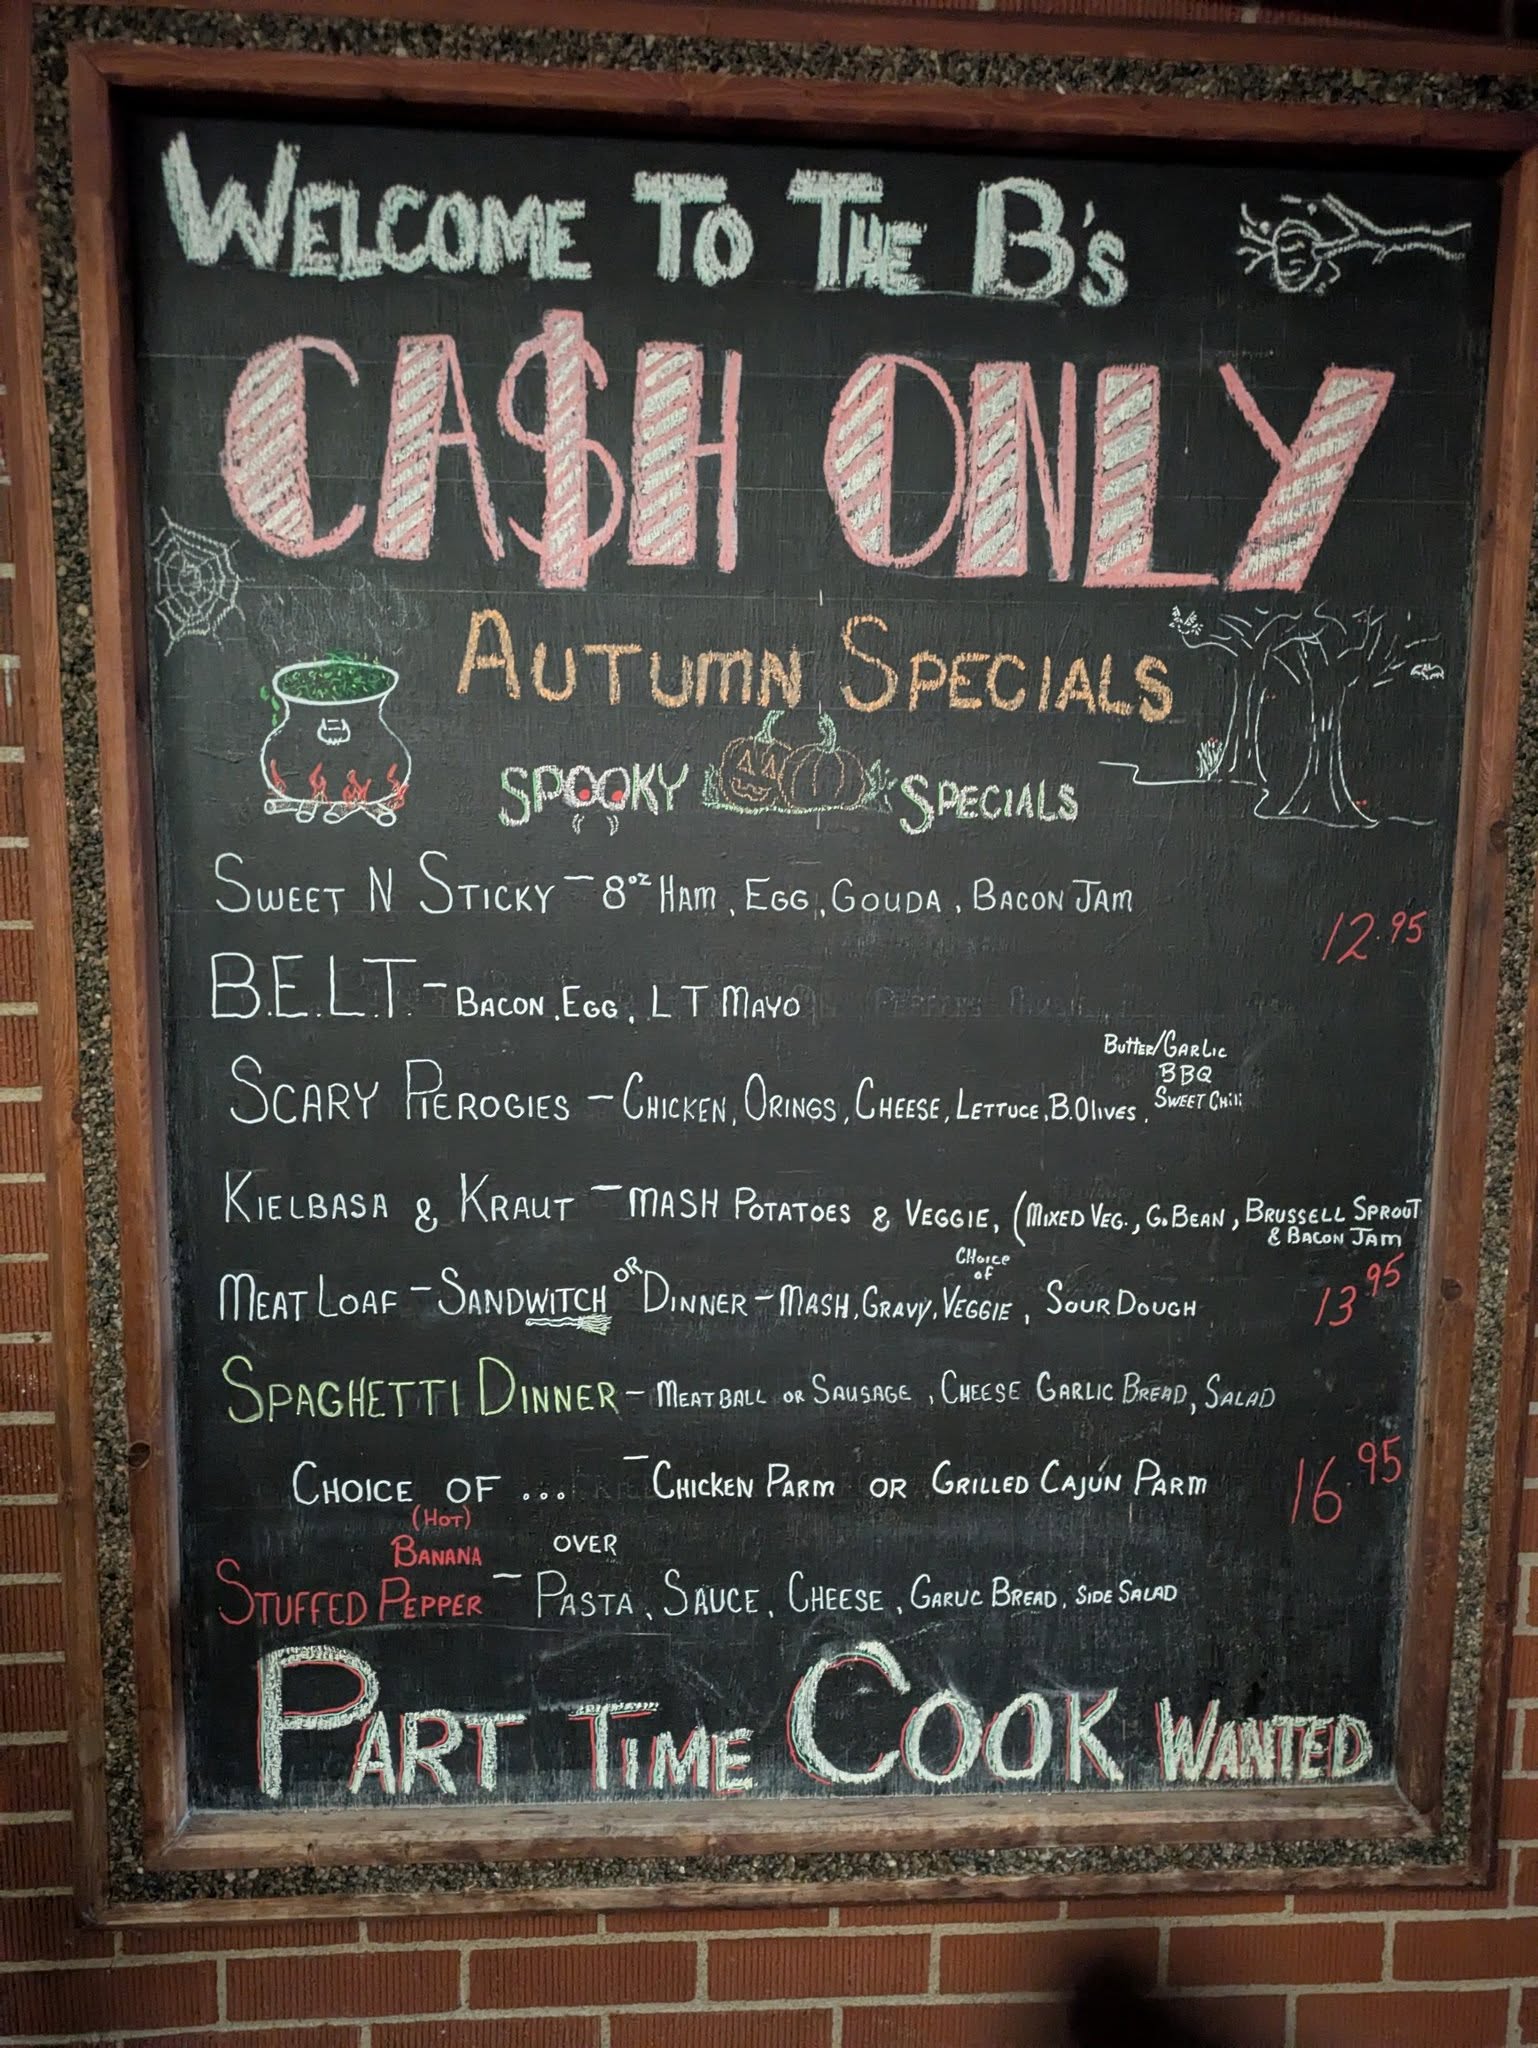 WELCOME TO THE B's
CA$H ONLY
AUTUMN SPECIALS
SPOOKY SPECIALS
SWEET N STICKY - 8oz HAM, EGG, GOUDA, BACON JAM
12.95
B.E.L.T. - BACON, EGG, L T MAYO
BUTTER/GARLIC
BBQ
SWEET CHILI
SCARY PIEROGIES - CHICKEN, ORINGS, CHEESE, LETTUCE, B.OLIVES,
KIELBASA & KRAUT - MASH POTATOES & VEGGIE, (MIXED VEG., G.BEAN, BRUSSELL SPROUT
& BACON JAM
MEAT LOAF - SANDWITCH OR DINNER - MASH, GRAVY, CHOICE OF VEGGIE, SOUR DOUGH
13.95
SPAGHETTI DINNER - MEATBALL OR SAUSAGE, CHEESE GARLIC BREAD, SALAD
CHOICE OF ... - CHICKEN PARM OR GRILLED CAJUN PARM
16.95
(HOT)
BANANA OVER
STUFFED PEPPER - PASTA, SAUCE, CHEESE, GARLIC BREAD, SIDE SALAD
PART TIME COOK WANTED